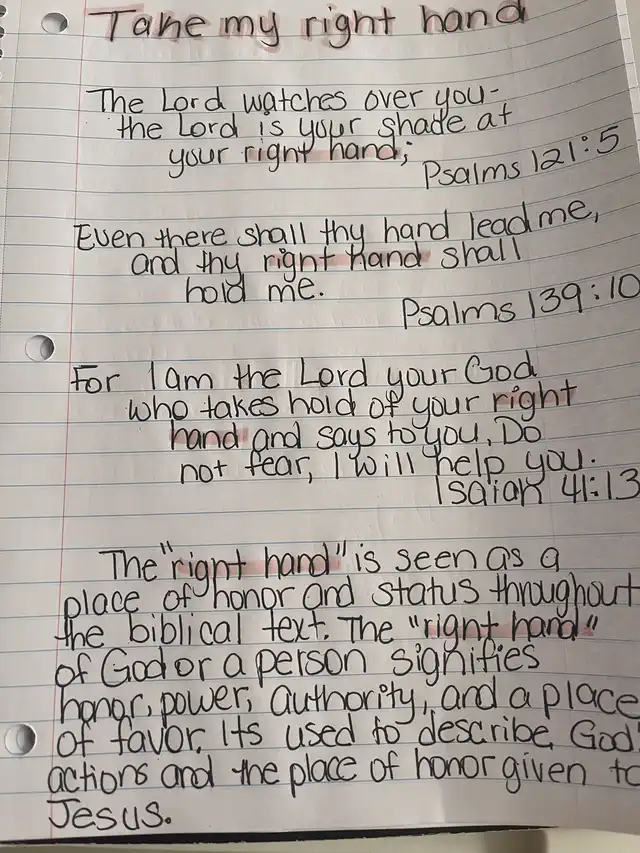 Take my right hand
The Lord watches over you-
the Lord is your shade at
your right hand;
Psalms 121:5
Even there shall thy hand lead me,
and thy right hand shall
hold me.
Psalms 139:10
For I am the Lord your God
who takes hold of your right
hand and says to you, Do
not fear, I will help you.
Isaiah 41:13
The "right hand" is seen as a
place of honor and status throughout
the biblical text. The "right hand"
of God or a person signifies
honor, power, authority, and a place
of favor. Its used to describe God'
actions and the place of honor given to
Jesus.